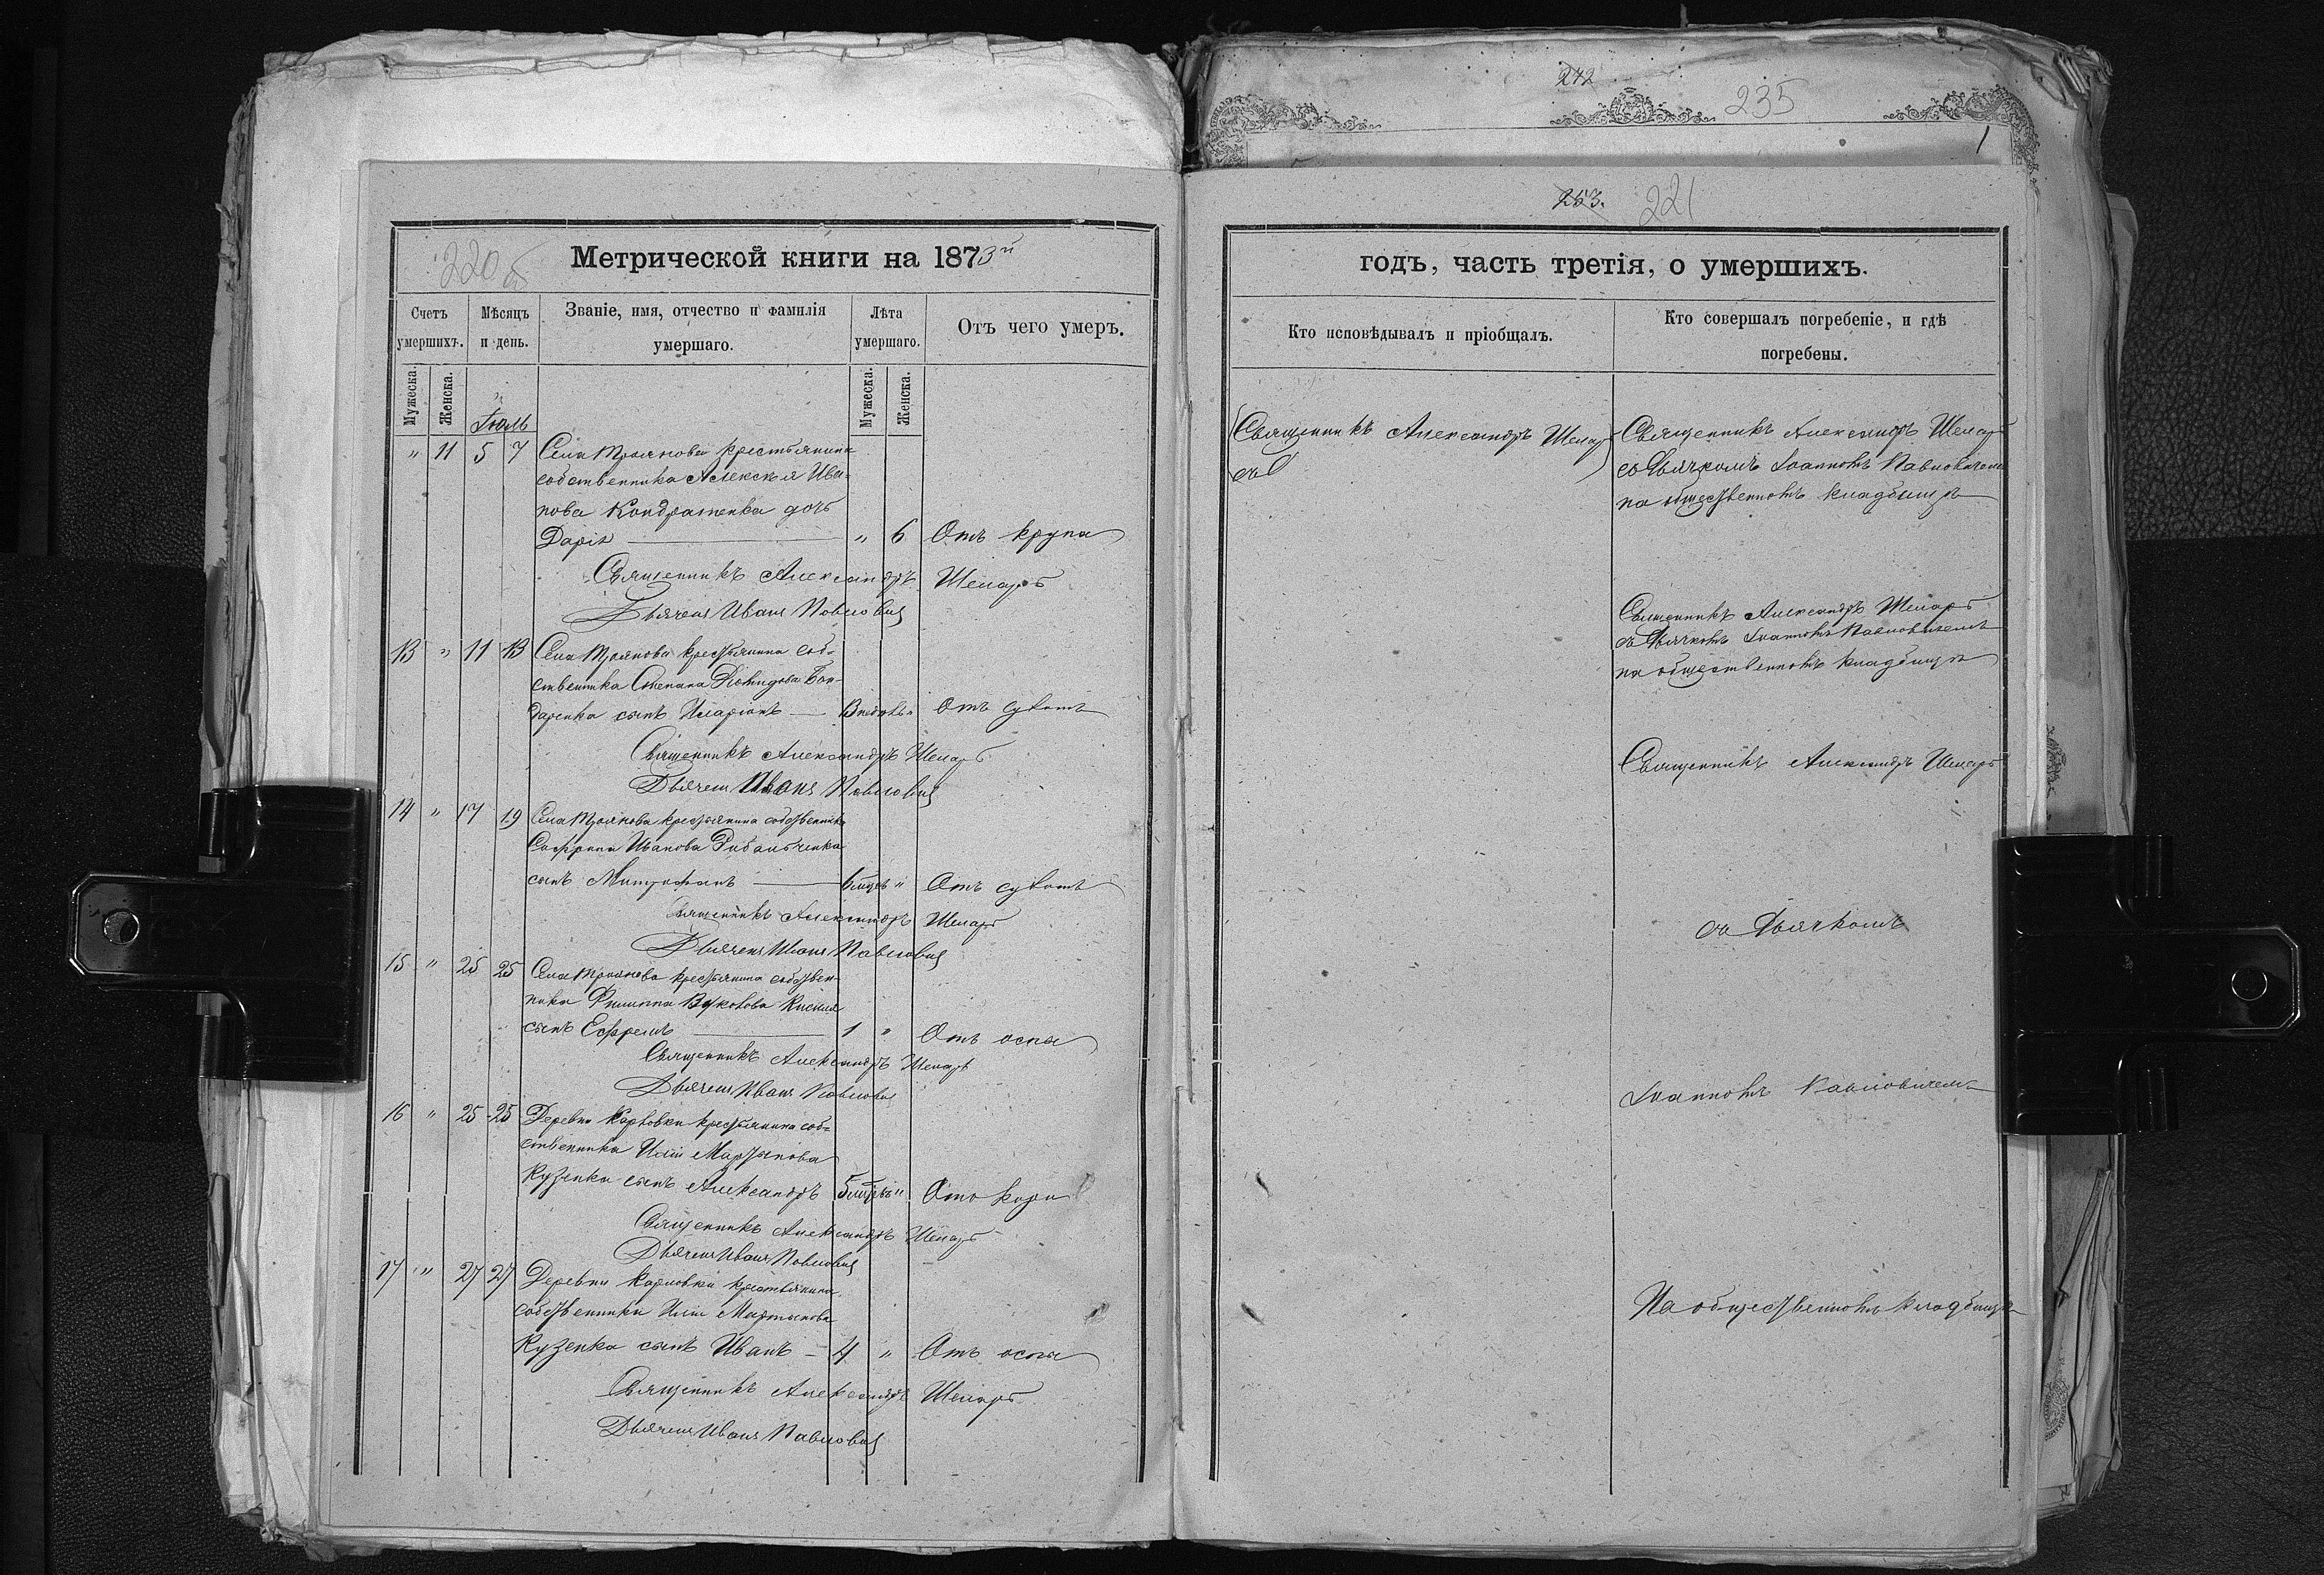 242
235
253.
221
220 об
Метрической книги на 1873й
годъ, часть третія, о умершихъ.
Счетъ умершихъ.
Мѣсяцъ и день.
Званіе, имя, отчество и фамилія умершаго.
Лѣта умершаго.
Отъ чего умеръ.
Мужеска.
Женска.
Мужеска.
Женска.
Іюль
" 11 5 7 Села Троянова крестьянина
собственника Алексѣя Ива-
нова Кондратенка дочь
Дарія — " 6 Отъ крупа
Священникъ Александръ
Дьячекъ Иванъ Павловичъ
13 " 11 13 Села Троянова крестьянина соб-
ственника Степана Бон-
даренка сынъ Иларіонъ — Отъ сухотъ
Священникъ Александръ
Дьячекъ Иванъ Павловичъ
14 " 17 19 Села Троянова крестьянина собственника
Иванова
сынъ Митрофанъ — Отъ сухотъ
Священникъ Александръ
Дьячекъ Иванъ Павловичъ
15 " 25 25 Села Троянова крестьянина собствен-
ника Филиппа
сынъ Ефремъ — 1 " Отъ оспы
Священникъ Александръ
Дьячекъ Иванъ Павловичъ
16 " 25 25 Деревни крестьянина соб-
ственника Иліи Мартынова
Кузенка сынъ Александръ " Отъ кори
Священникъ Александръ
Дьячекъ Иванъ Павловичъ
17 " 27 27 Деревни крестьянина
собственника Иліи Мартынова
Кузенка сынъ Иванъ — 4 " Отъ оспы
Священникъ Александръ
Дьячекъ Иванъ Павловичъ
Кто исповѣдывалъ и пріобщалъ.
Кто совершалъ погребеніе, и гдѣ погребены.
Священникъ Александръ
Священникъ Александръ
съ Дьячкомъ Іоанномъ Павловичемъ
на общественномъ кладбищѣ
Священникъ Александръ
съ Дьячкомъ Іоанномъ Павловичемъ
на общественномъ кладбищѣ
Священникъ Александръ
съ Дьячкомъ
Іоанномъ Павловичемъ
На общественномъ кладбищѣ